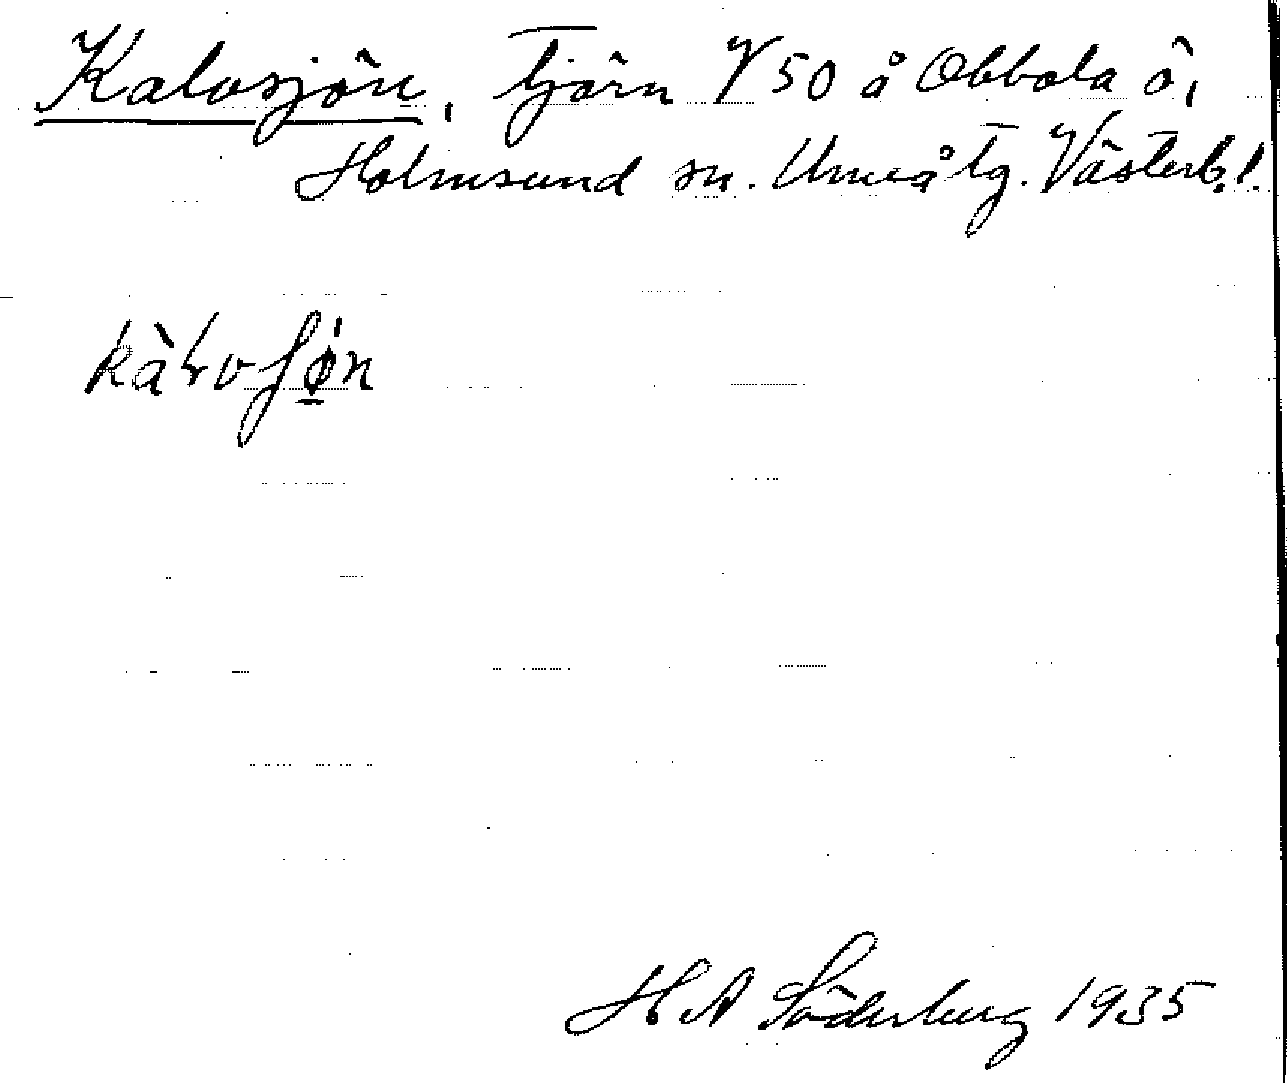 Kalvsjön, Tjärn V 50 å Obbola ö,
Holmsund sn. Umeå tg. Västerb.l.
H A Söderberg 1935